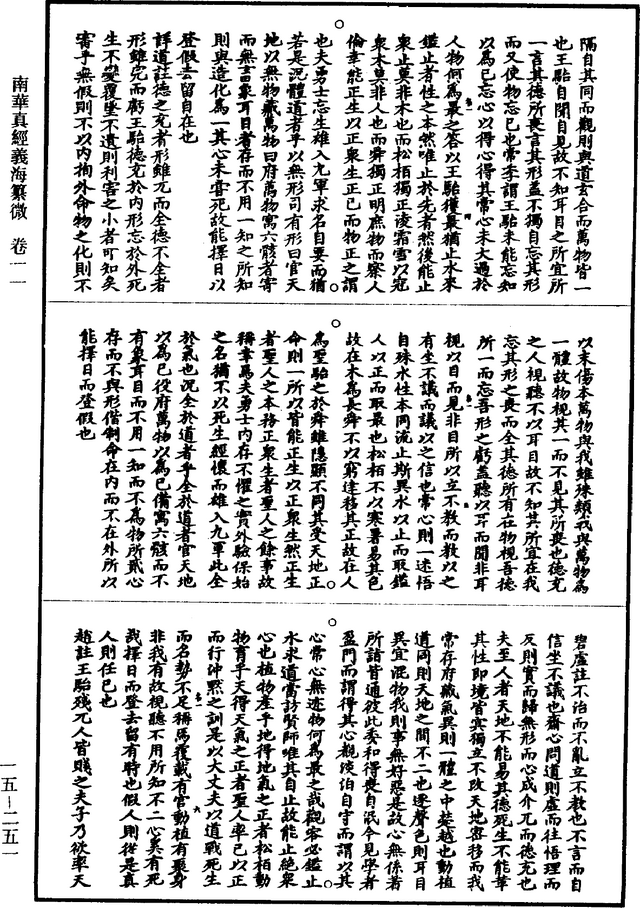 隔自其同而觀則與道玄合而萬物皆一
也王駘自聞自見故不知耳目之所宜所
一言其德所喪言其形蓋不獨自忘其形
而又使物忘已也常季謂王駘未能忘知
以為已忘心以得心得其常心未大過於
人物何為最之荅以王駘獲最猶止水求
鑑止者性之本然唯止於先者然後能止
衆止莫非木也而松栢獨正凌霜雪以冠
衆木莫非人也而舜獨正明庶物而察人
倫幸能正生以正衆生正已而物正之謂
也夫勇士忘生雄入九軍求名自要而猶
若是況體道者乎以無形司有形曰官天
地以無物藏萬物曰府萬物寓六骸者寄
而無言象耳目者存而不用一知之所知
則與造化為一其心未嘗死故能擇日以
登假去留自在也
詳道註德之充者形雖兀而全德不全者
形雖完而虧王駘德充於內形忘於外死
生不變覆墜不遺則利害之小者可知矣
審乎無假則不以內拘外命物之化則不
以末傷本萬物與我雖殊類我與萬物為
一體故物視其一而不見其所喪也德充
之人視聽不以耳目故不知其所宜在我
忘其形之喪而全其德所有在物視吾德
所一而忘吾形之虧蓋聽以耳而聞非耳
視以目而見非目所以立不教而教以之
有坐不議而議以之信也常心則一迷悟
自殊水性本同流止斯異水以止而取鑑
人以正而取最也松栢不以寒暑易其色
故在木為長舜不以窮達移其正故在人
為聖駘之於舜雖隱顯不同其受天地正
命則一所以皆能正生以正衆生然正生
者聖人之本務正衆生者聖人之餘事故
稱幸焉夫勇士內存不懼之實外驗保始
之名猶不以死生經懷而雄入九軍此全
於氣也況全於道者乎全於道者官天地
以為已役府萬物以為已備寓六骸而不
有象耳目而不用一知而不為物所貳心
存而不與形偕制命在內而不在外所以
能擇日而登假也
碧虛註不治而不亂立不教也不言而自
信坐不議也齋心問道則虛而往悟理而
反則實而歸無形而心成介兀而德充也
夫至人者天地不能易其德死生不能革
其性即境皆寘獨立不改天地密移而我
常存府藏氣異則一體之中楚越也動植
道同則天地之間不二也逐聲色則耳目
異宜混物我則事無好惡是故心無係著
所諧皆通彼此委和得喪自泯今見學者
盈門而謂得其心觀淡泊自守而謂以其
心常心無迹物何為最之哉觀容必鑑止
水求道當訪賢師唯其自止故能止絶衆
心也植物產乎地得地氣之正者松栢動
物育乎天得天氣之正者聖人率已以正
而行沖黙之訓是以大丈夫以道戰死生
而名勢不足稱焉覆載有官動植有聚身
非我有故視聽不用所知不二心奚有死
哉擇日而登去留有時也假人則從是真
人則任已也
趙註王駘殘兀人皆賤之夫子乃欲率天
南華真經義海纂微 卷一一
一五－二五一